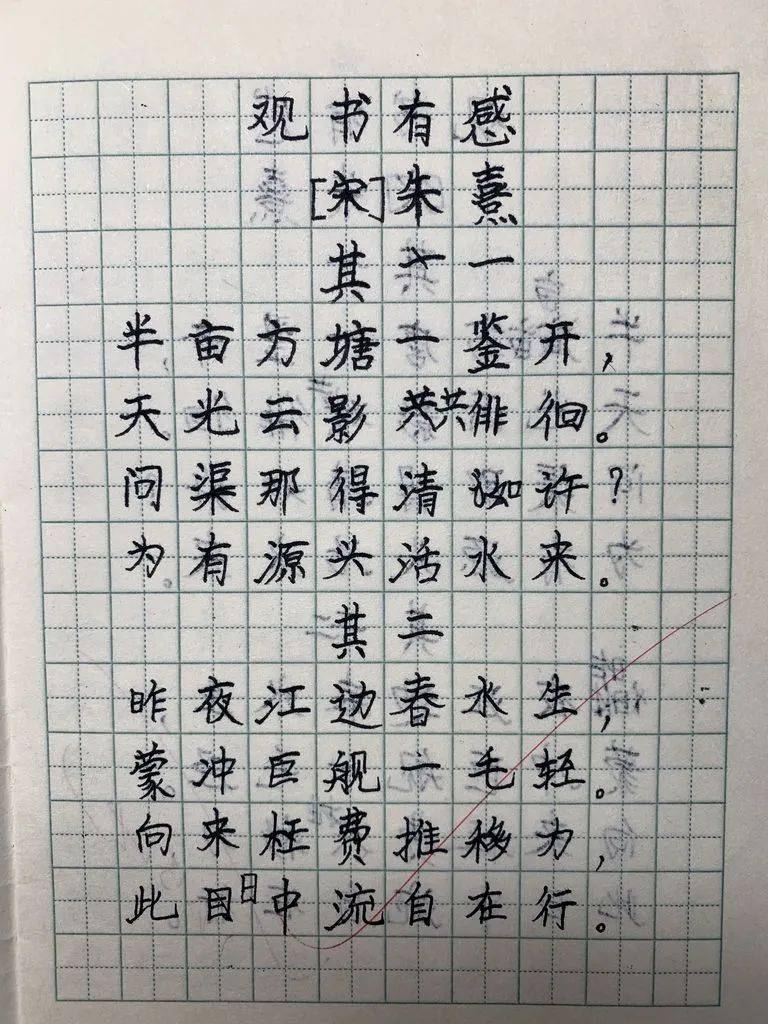 观书有感
[宋]朱熹
其一
半亩方塘一鉴开,
天光云影共徘徊。
问渠那得清如许?
为有源头活水来。
其二
昨夜江边春水生,
蒙冲巨舰一毛轻。
向来枉费推移为,
此日中流自在行。